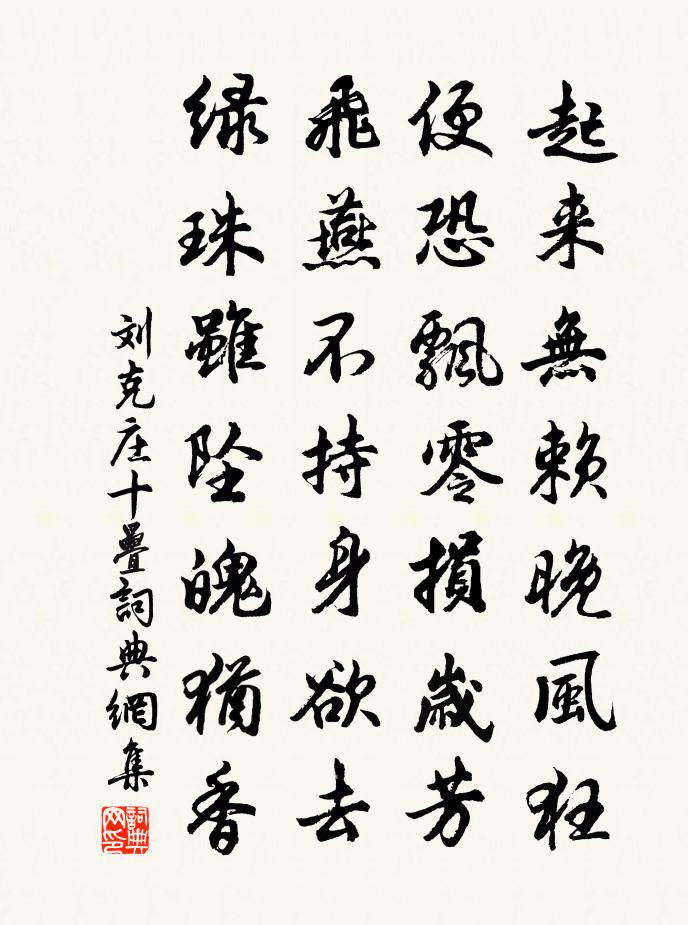 起来無赖晚風狂
便恐飄零損歲芳
飛燕不持身欲去
緑珠雖坠魄猶香
刘克庄十疊詞典網集
詞典网印